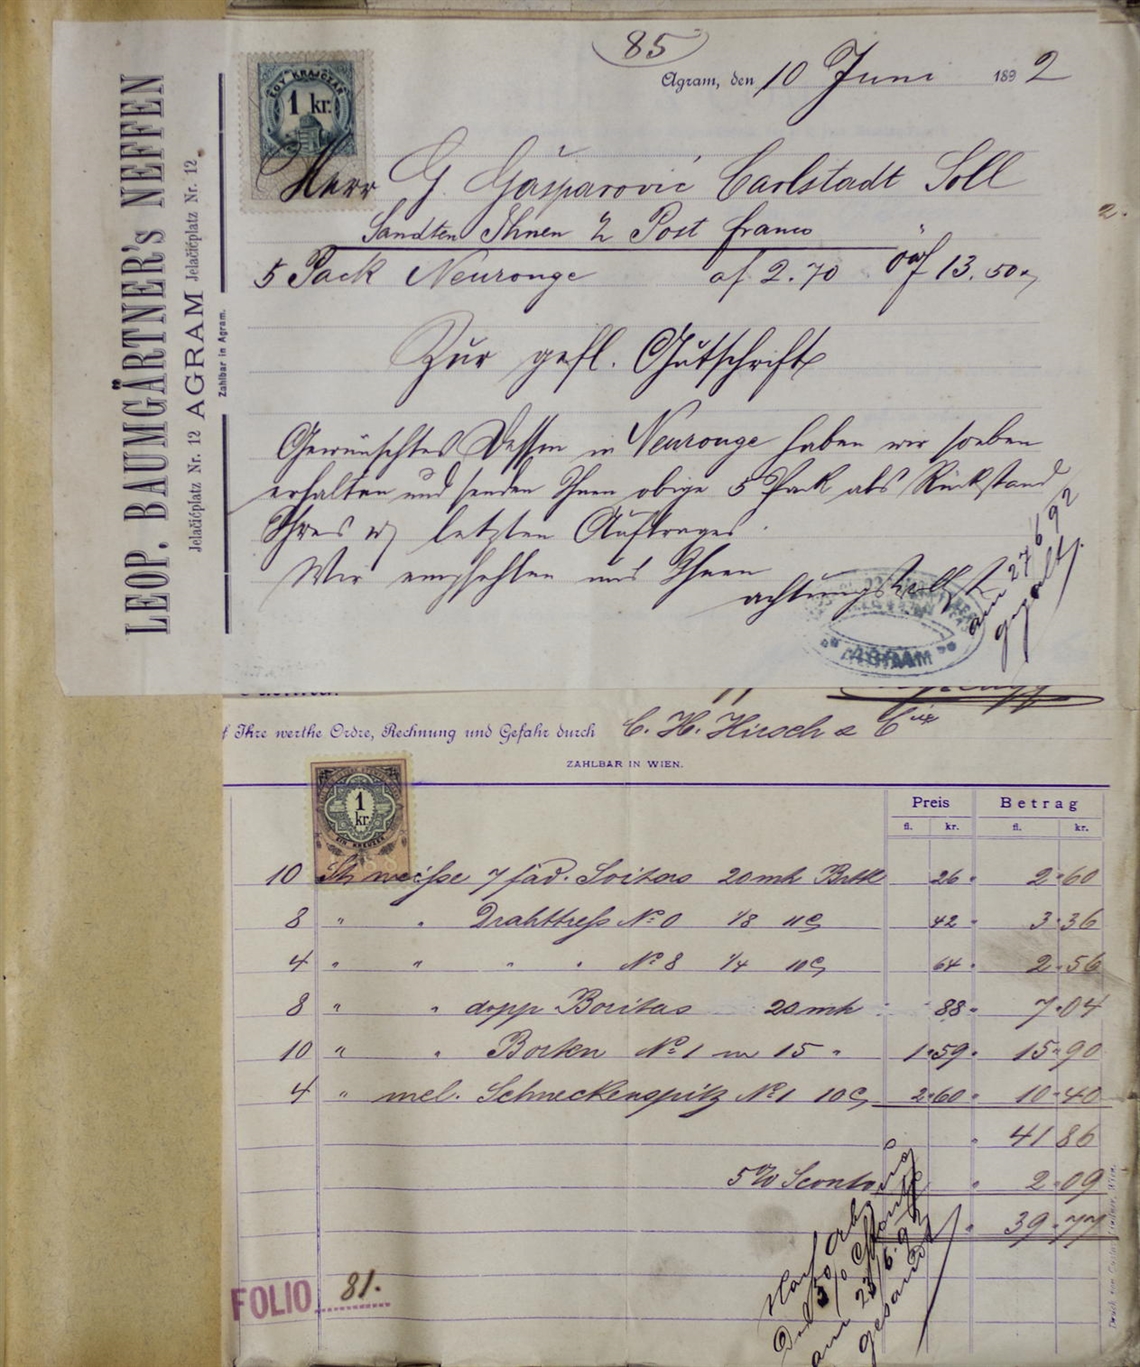 85
Agram, den 10 Juni 1892
LEOP. BAUMGÄRTNER's NEFFEN
Jelačićplatz Nr. 12 AGRAM Jelačićplatz Nr. 12.
Zahlbar in Agram.
EGY KRAJCZÁR
1 kr.
Herr G. Gašparović Carlstadt Soll
Sandten Ihnen Post franco
5 Pack Neurouge af 2.70 öwf 13.50
Zur gefl. Gutschrift
Gewünschtes Dessin in Neurouge haben wir soeben
erhalten und senden Ihnen obige 5 Pack als Rückstand
Ihres letzten Auftrages.
Wir empfehlen uns Ihnen
achtungsvollst
AGRAM
am 27 6 92
gezahlt
2.
Ihre werthe Ordre, Rechnung und Gefahr durch C. H. Hirsch & Cie
ZAHLBAR IN WIEN.
Preis Betrag
fl. kr. fl. kr.
1 kr.
EIN KREUZER
10 St weisse 7 fäd. 20 mtr 26 2 60
8 " " No 0 1/8 42 3 36
4 " " " " No 8 1/4 64 2 56
8 " " dopp 20 mtr 88 7 04
10 " " Borten No 1 15 " 1 59 15 90
4 " mel. Schneckenspitz No 1 2 60 10 40
41 86
5% Sconto 2 09
39 77
am 23/6. 92
gesandt
FOLIO 81.